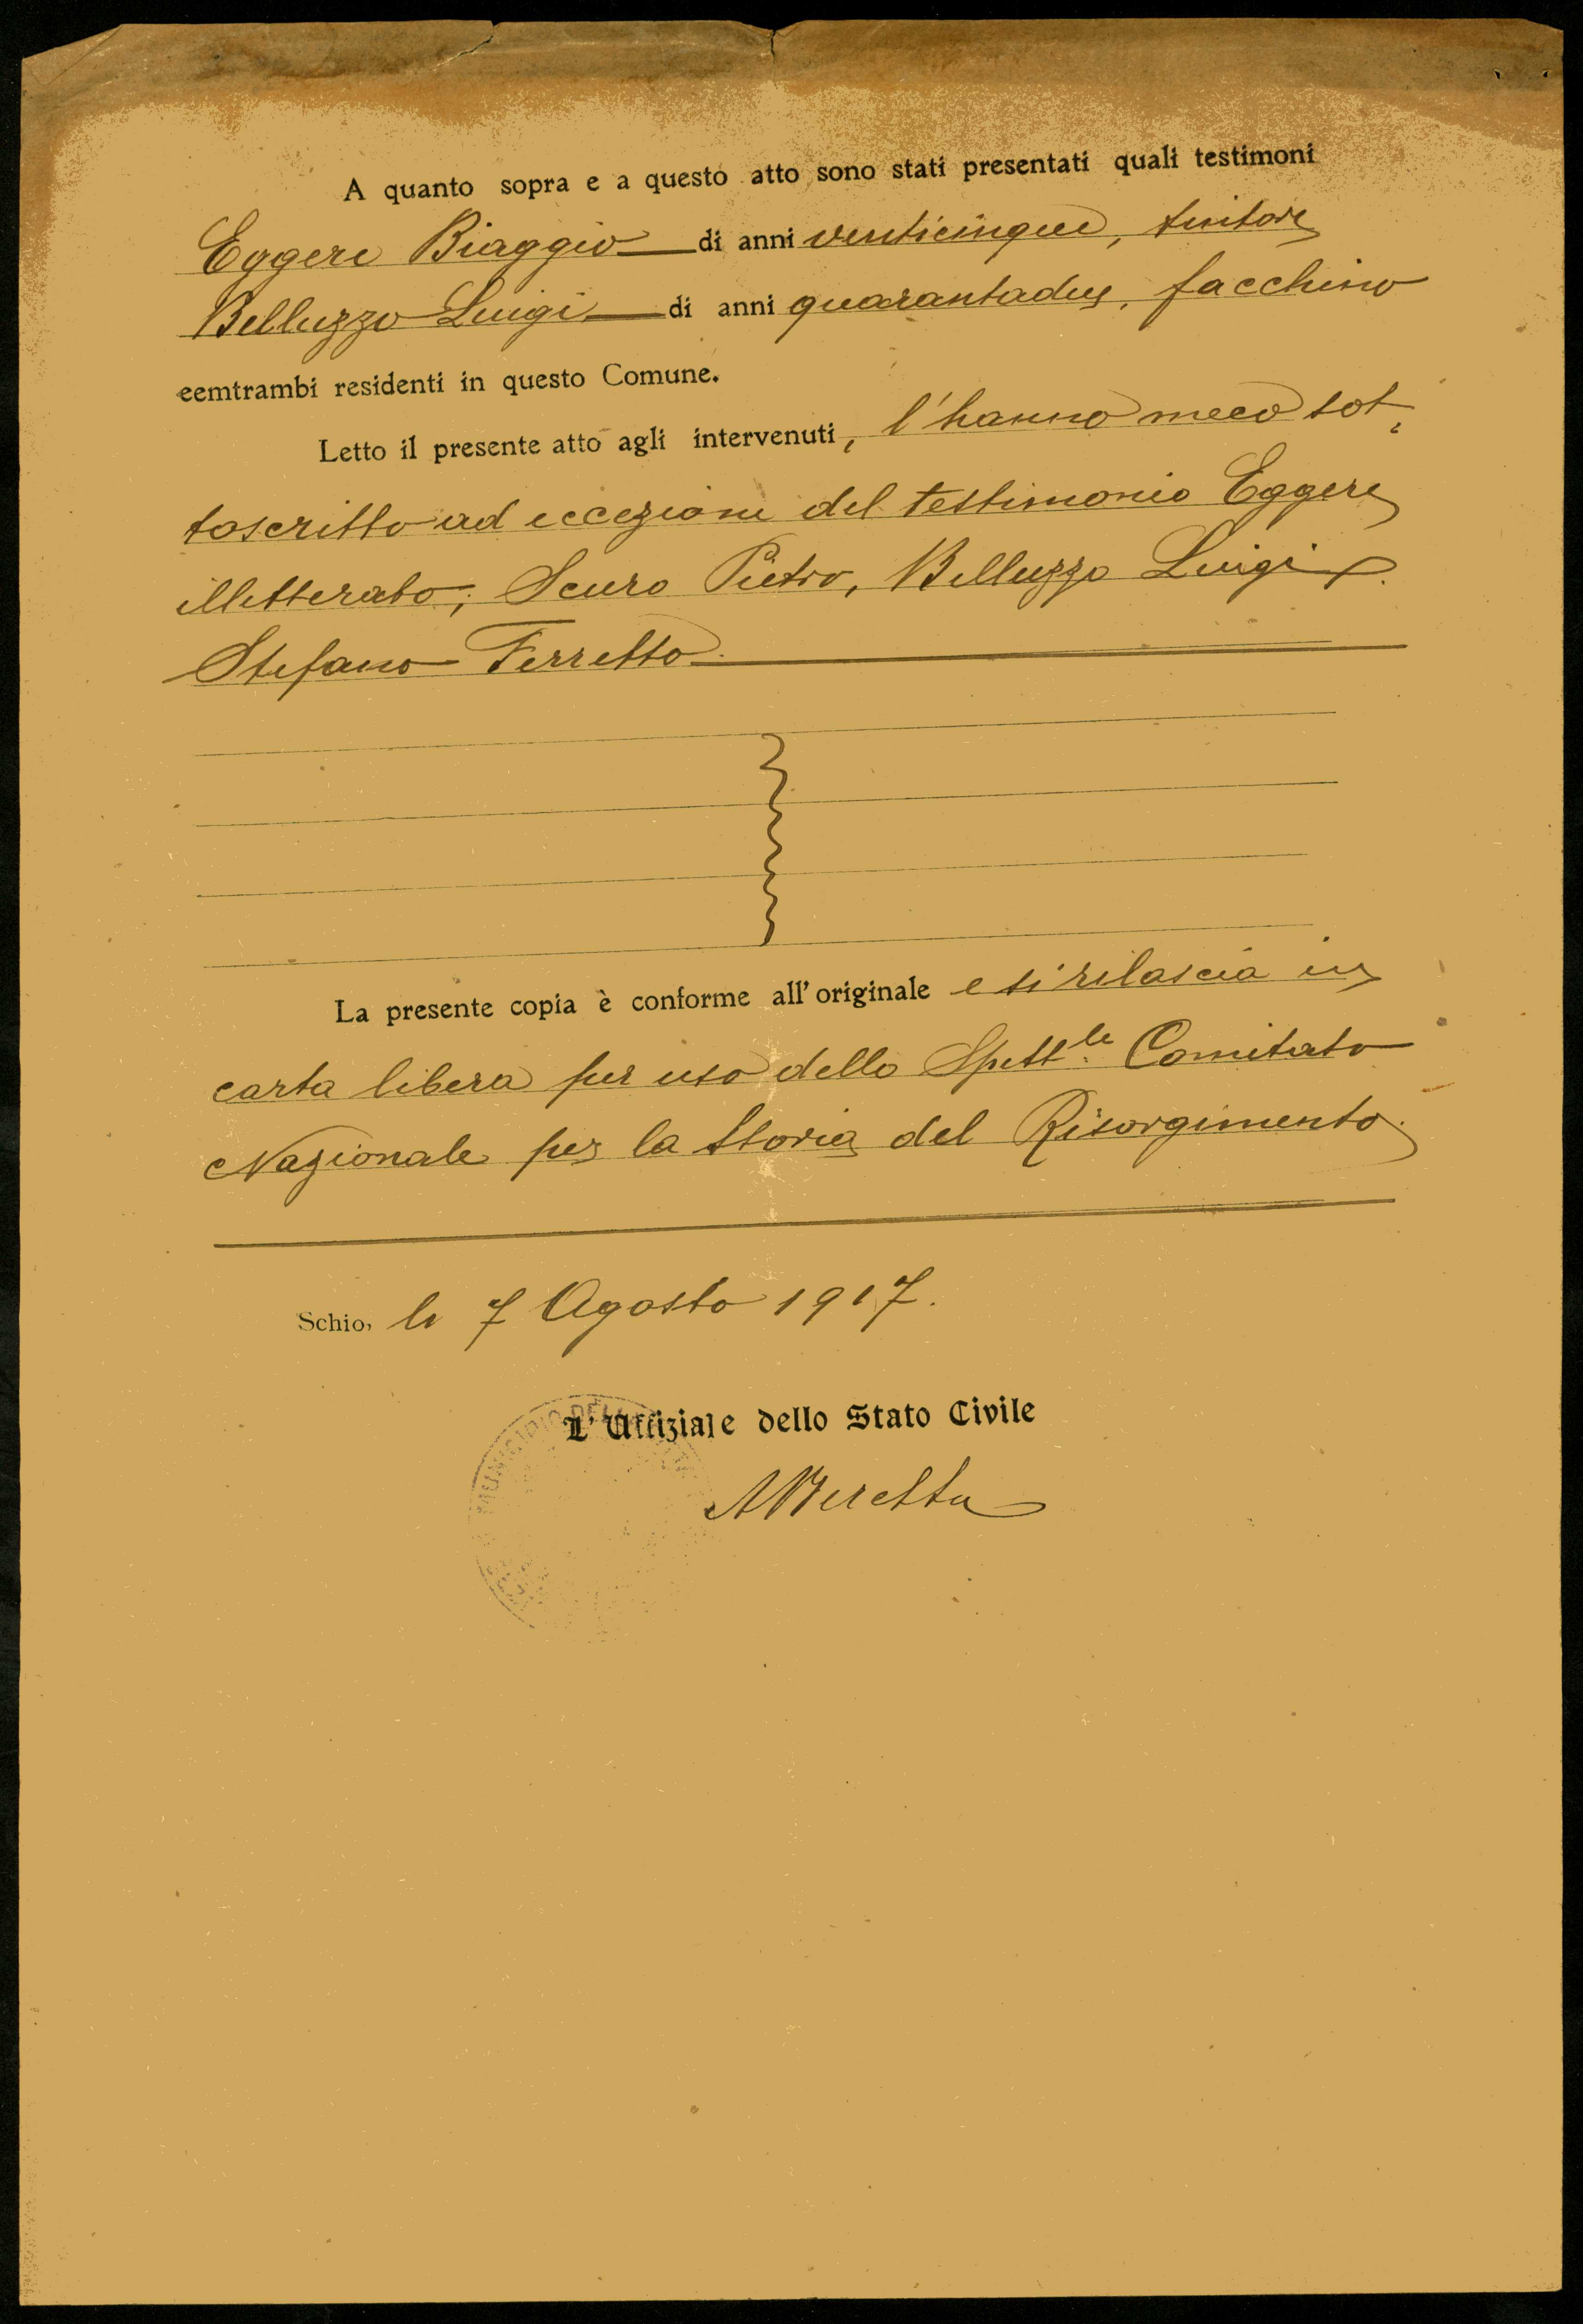 A quanto sopra e a questo atto sono stati presentati quali testimoni
Eggere Biaggio di anni venticinque, tintore
Belluzzo Luigi di anni quarantadue, facchino
eemtrambi residenti in questo Comune.
Letto il presente atto agli intervenuti, l'hanno meco sot,
toscritto ad eccezione del testimonio Eggere
illetterato; Scuro Pietro, Belluzzo Luigi
Stefano Ferretto.
La presente copia è conforme all'originale e si rilascia in
carta libera per uso dello Spett.le Comitato
Nazionale per la Storia del Risorgimento.
Schio, li 7 Agosto 1917.
L'Uffiziale dello Stato Civile
MUNICIPIO DELLA
ABeretta